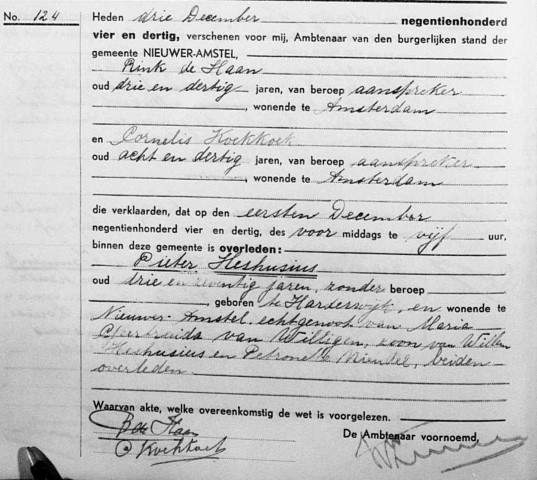 No. 124
Heden drie December negentienhonderd
vier en dertig, verschenen voor mij, Ambtenaar van den burgerlijken stand der
gemeente NIEUWER-AMSTEL,
Rink de Haan
oud drie en dertig jaren, van beroep aanspreker
, wonende te Amsterdam
en Cornelis Koekkoek
oud acht en dertig jaren, van beroep aanspreker
, wonende te Amsterdam
die verklaarden, dat op den eersten December
negentienhonderd vier en dertig, des voor middags te vijf uur,
binnen deze gemeente is overleden:
Pieter Heshusius
oud drie en zeventig jaren, zonder beroep
, geboren te Harderwijk, en wonende te
Nieuwer-Amstel, echtgenoot van Maria
Geertruida van Willigen, zoon van Willem
Heshusius en Petronella, beiden
overleden
Waarvan akte, welke overeenkomstig de wet is voorgelezen.
R de Haan
De Ambtenaar voornoemd,
C Koekkoek